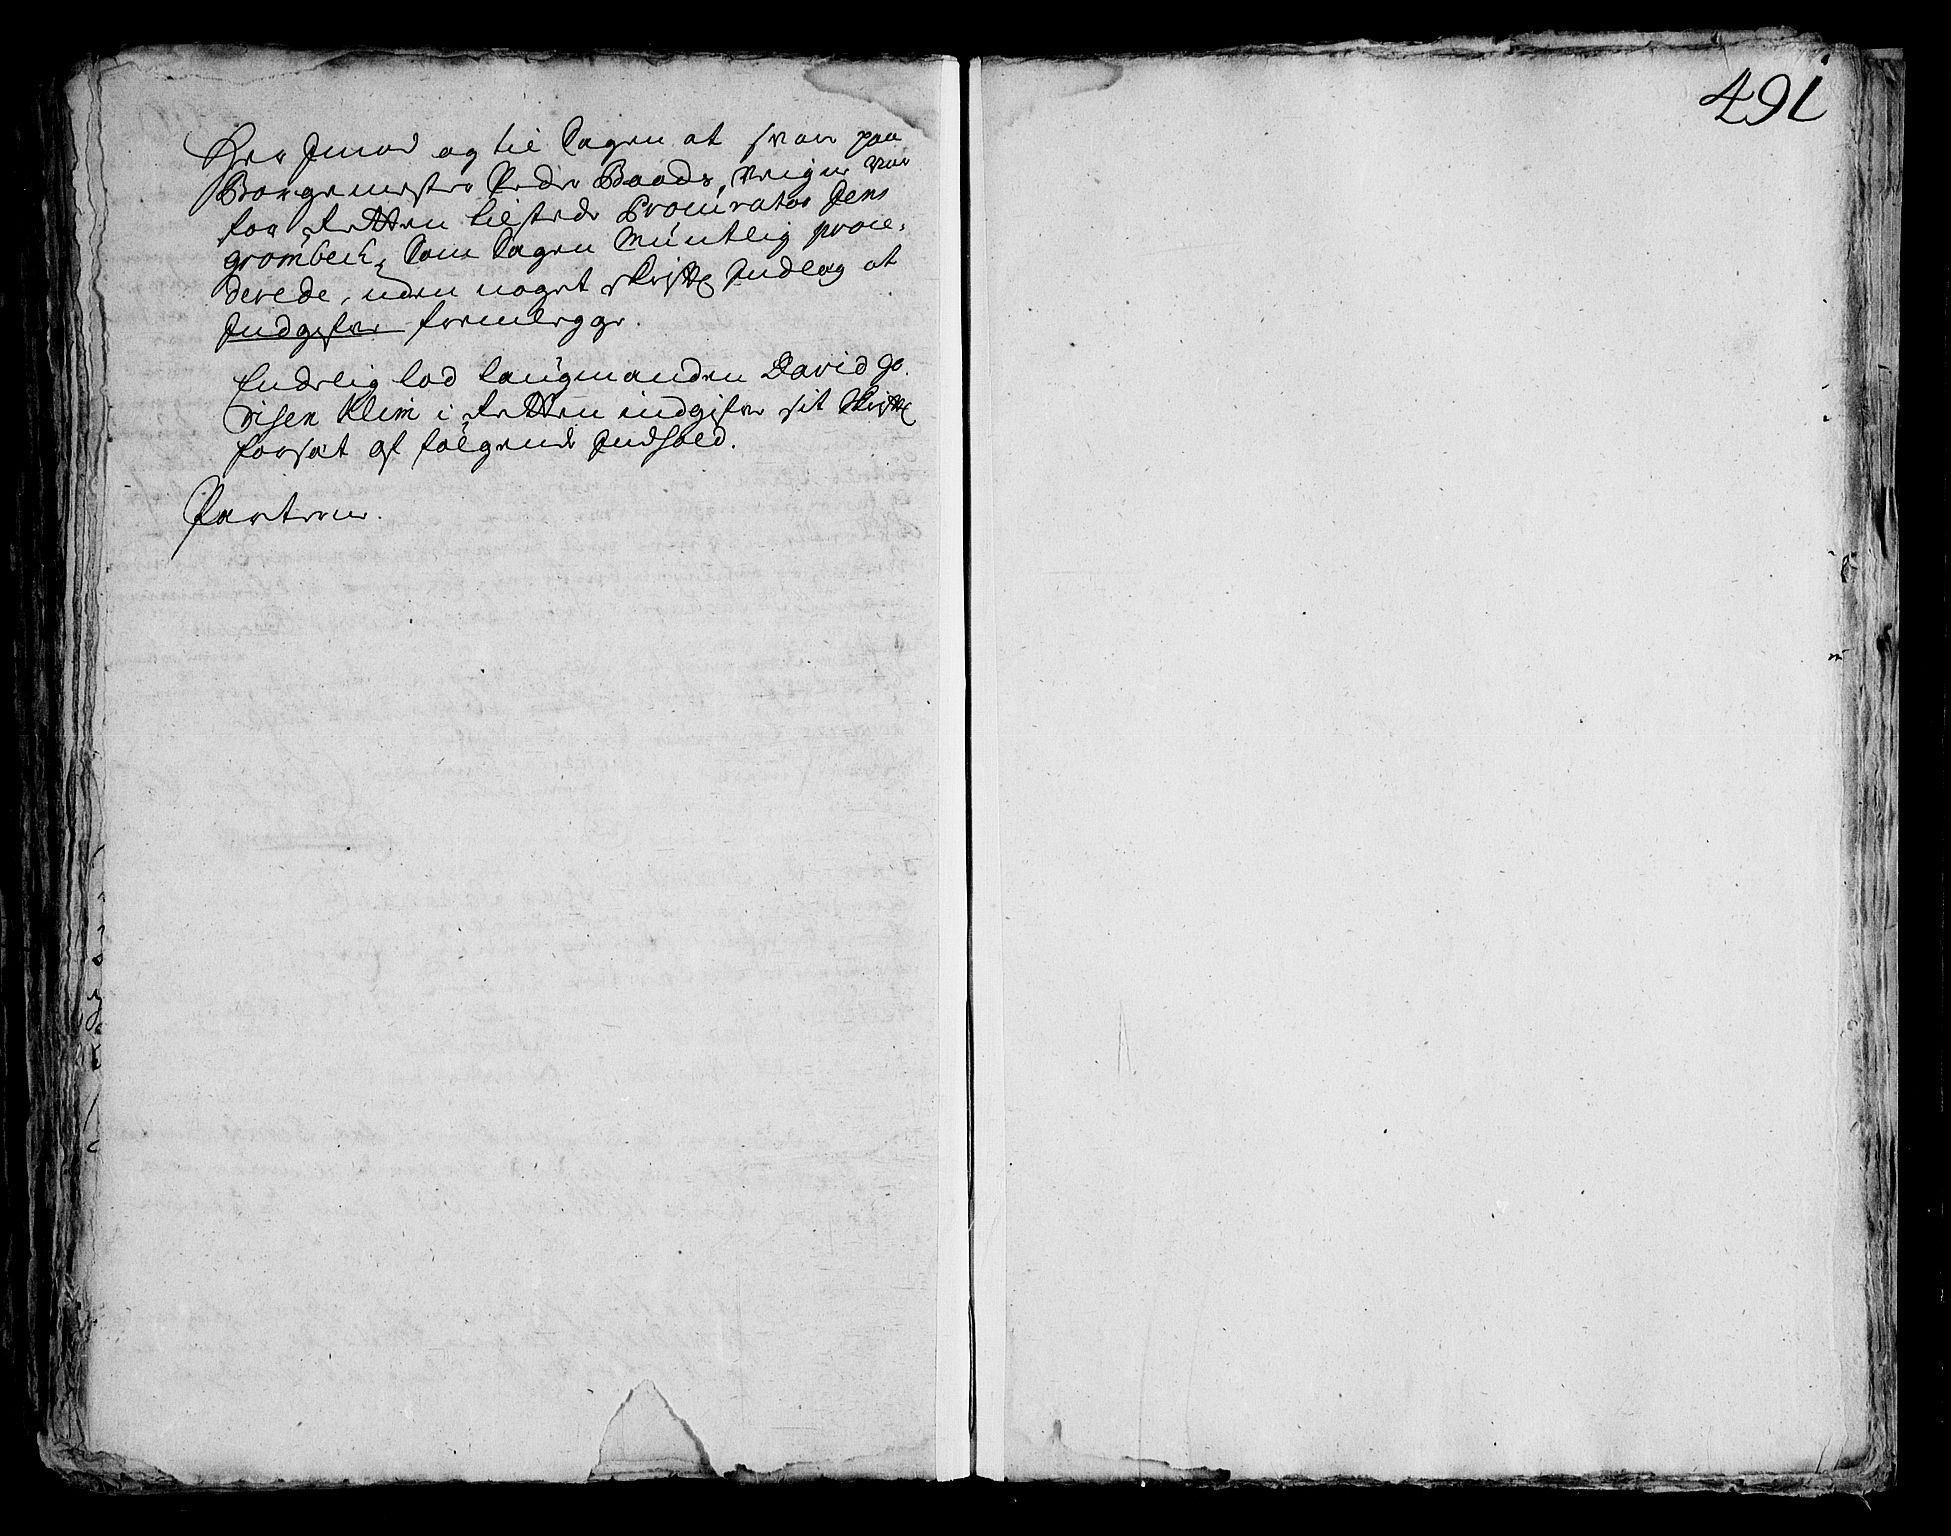 Her Imod og til Sagen at svare paa
Borgemester Peder Baads, veigne var
for Retten tilstede Procurator Jens
grømbech, Som Sagen Müntlig proce,
derede, uden noget skriftl Indlæg at
Indgifve fremlegge.
Endelig lod laugmanden David Jo,
risen Klim i Retten indgifve sit skriftl
forsæt af følgende Indhold.
491